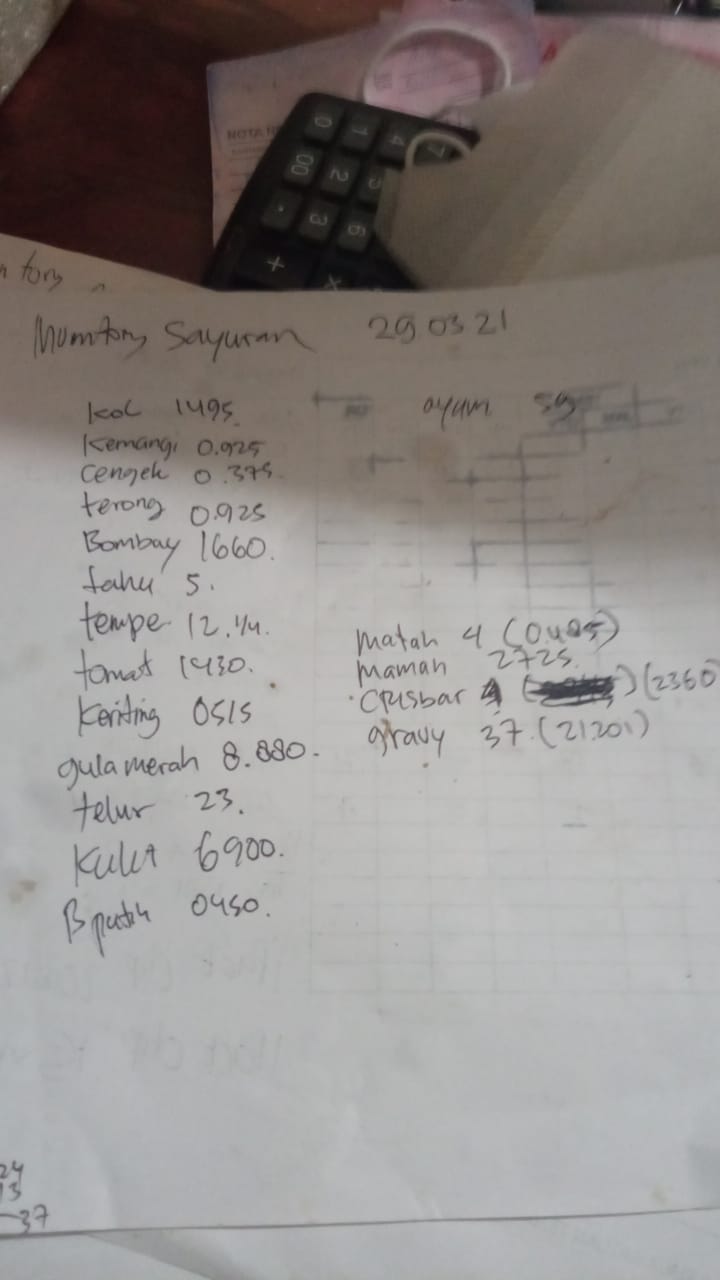 NOTA
0 1 4 7
00 2 5
. 3 6
+ x
tory
Inventory Sayuran 29 03 21
kol 1495
Kemangi 0.925
cengek 0.375
terong 0.925
Bombay 1660.
tahu 5.
tempe 12.1/4.
tomat 1430.
Keriting 0515
gula merah 8.880.
telur 23.
Kulit 6900.
B putih 0450.
ayam 59
matah 4 (0.485)
mamah 2725.
crisbar (2360
gravy 37.(21.201)
24
13
37